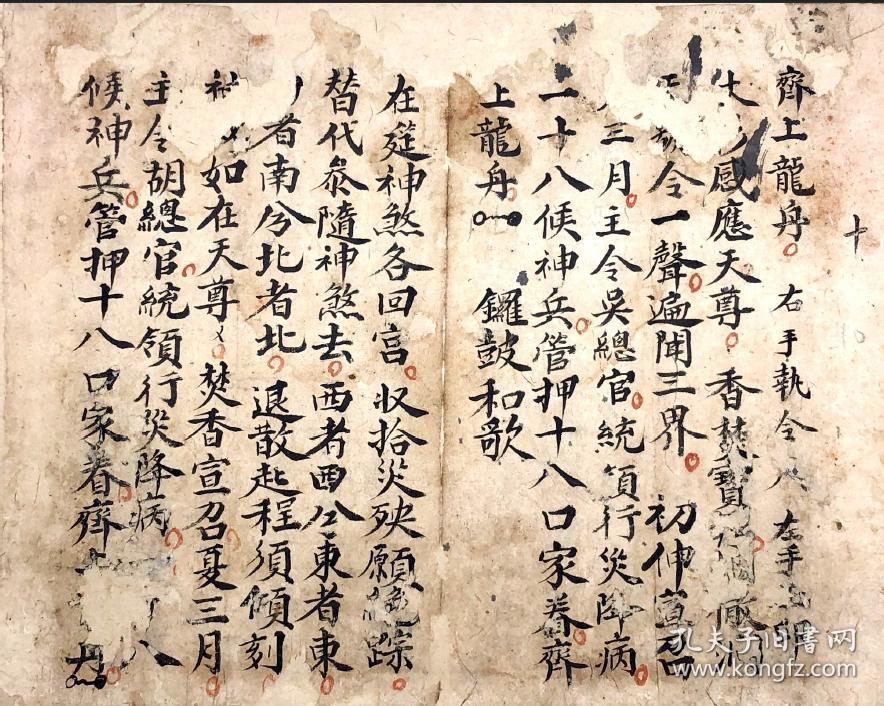 齊上龍舟 右手執令 左手
感應天尊 香焚寶
令一聲遍聞三界 初伸宣召
三月主令吳總官統領行災降病
二十八候神兵管押十八口家眷齊
上龍舟 鑼鼓和歌
在筵神煞各回宮収拾災殃願絶踪
替代叅隨神煞去西者西兮東者東
者南兮北者北退散起程須傾刻
如在天尊 焚香宣召夏三月
主令胡總官統領行災降病 八
候神兵管押十八口家眷齊
十
孔夫子旧书网
www.kongfz.com